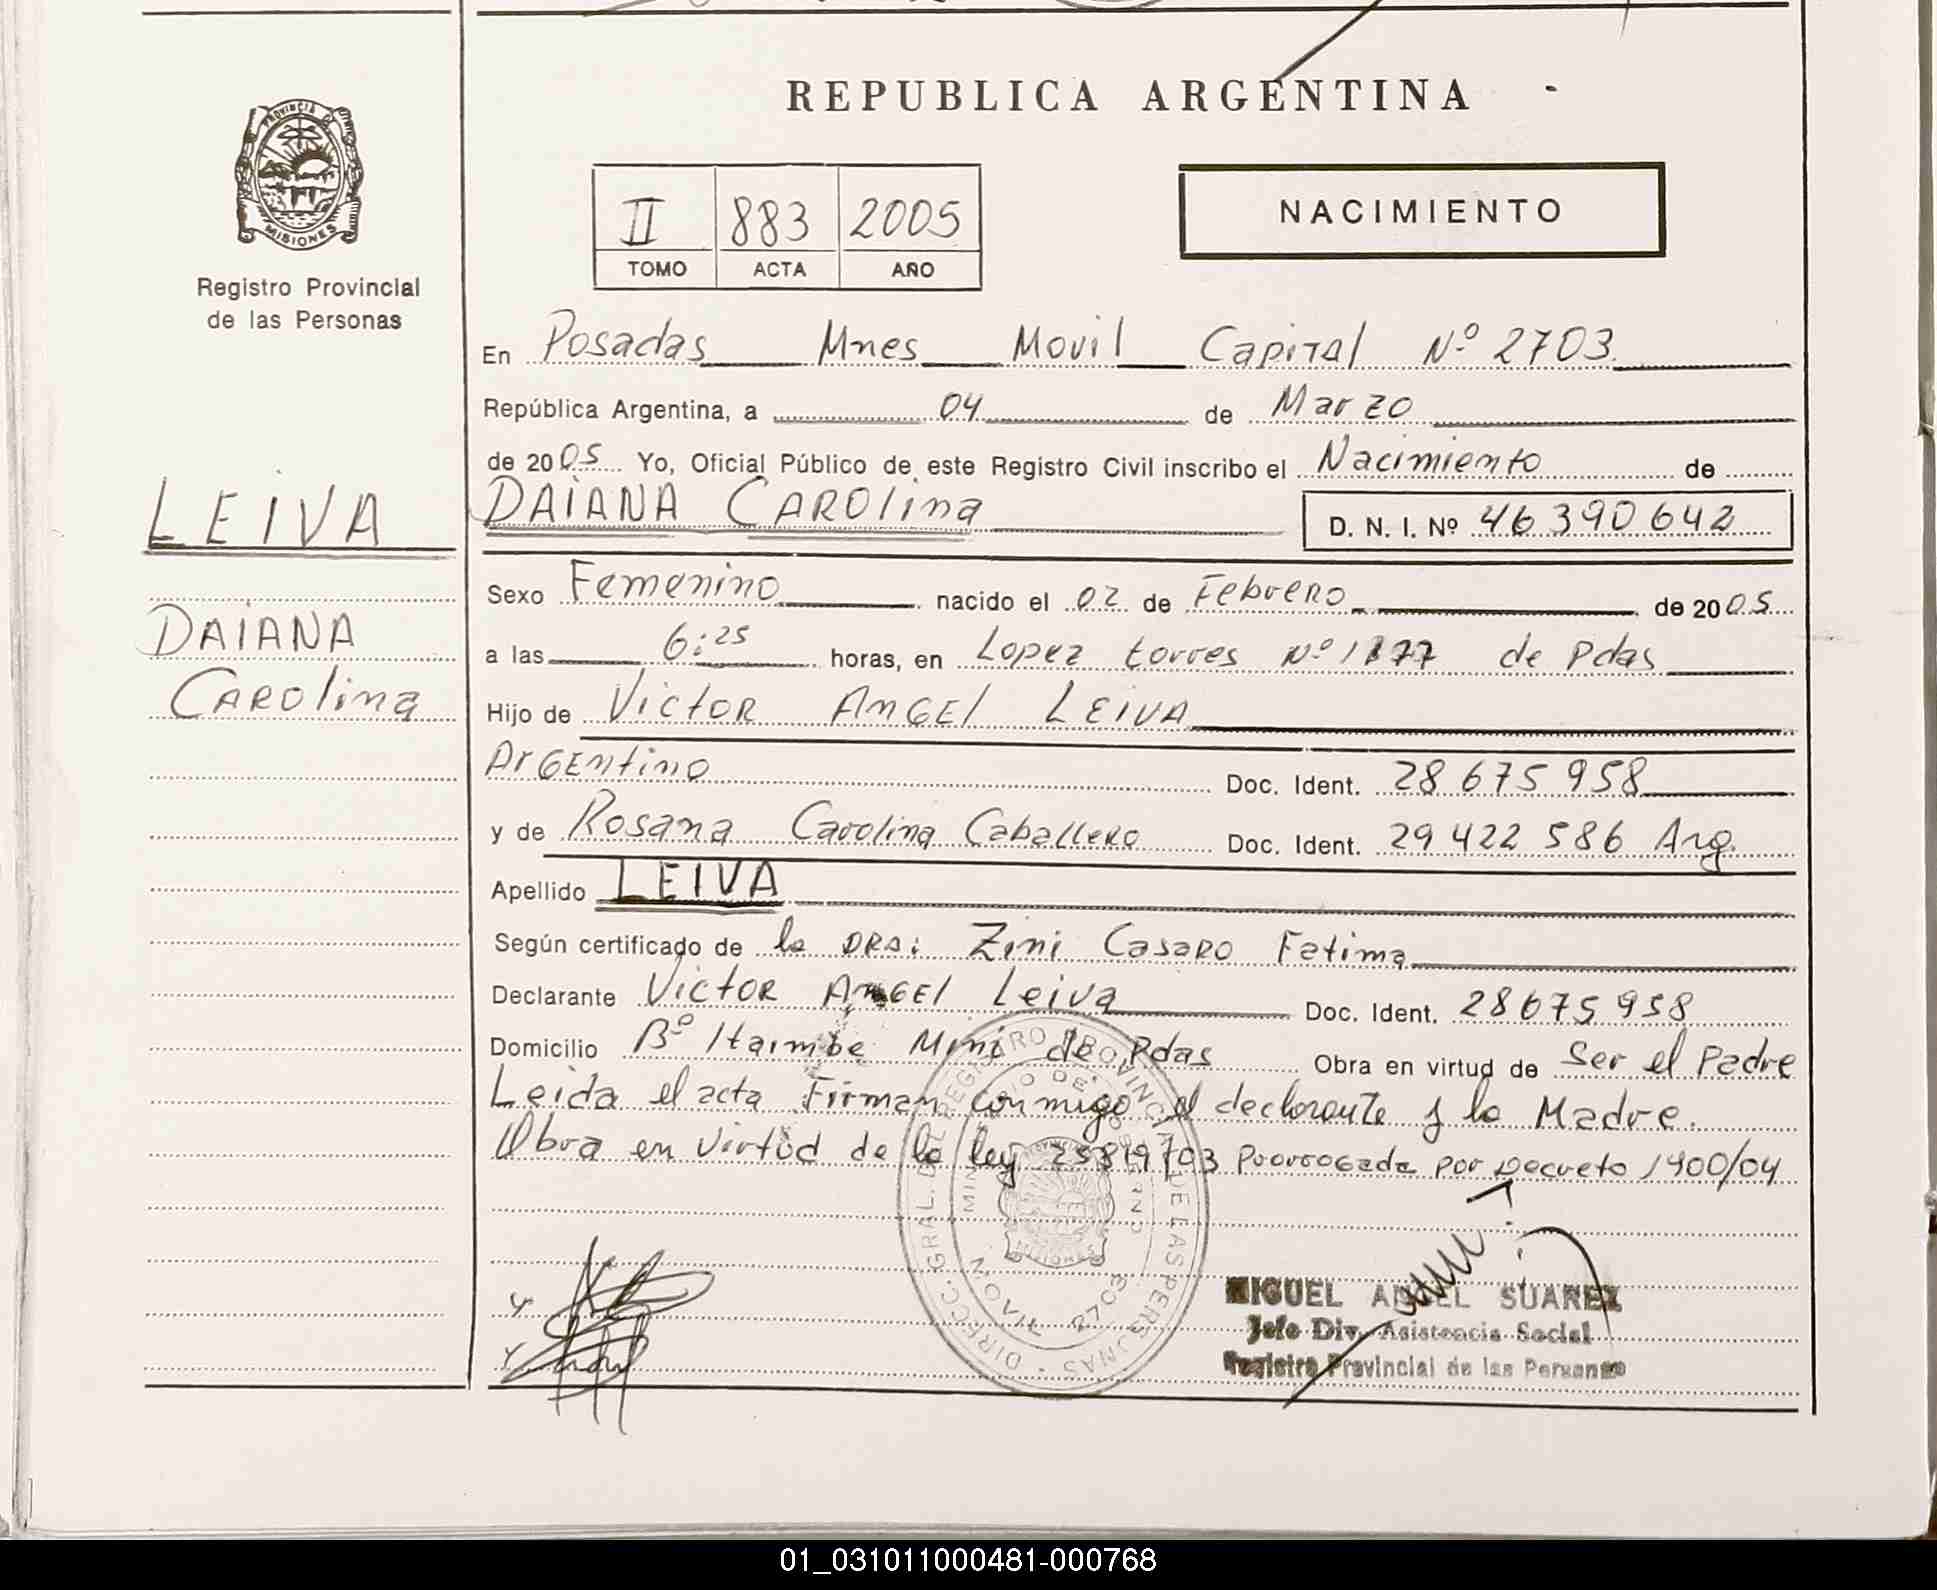 REPUBLICA ARGENTINA
PROVINCIA DE MISIONES
Registro Provincial
de las Personas
II 883 2005
TOMO ACTA AÑO
NACIMIENTO
En Posadas Mnes Movil Capital Nº 2703
República Argentina, a 04 de Marzo
de 2005 Yo, Oficial Público de este Registro Civil inscribo el Nacimiento de
LEIVA
DAIANA CAROlina
D. N. I. Nº 46 390 642
Sexo Femenino nacido el 02 de Febrero de 2005
DAIANA
CAROlina
a las 6:25 horas, en Lopez torres Nº 1177 de Pdas
Hijo de Victor Angel LEIVA
Argentino Doc. Ident. 28 675 958
y de Rosana Carolina Caballero Doc. Ident. 29 422 586 Arg.
Apellido LEIVA
Según certificado de la DRA: Zini Casaro Fatima
Declarante Victor Angel Leiva Doc. Ident. 28675958
Domicilio Bº Itaimbe Mini de Pdas Obra en virtud de Ser el Padre
Leida el acta Firman conmigo el declarante y la Madre.
Obra en virtud de la ley 25819/03 Prorrogada por Decreto 1400/04
DIRECC. GRAL. DEL REGISTRO PROVINCIAL DE LAS PERSONAS
MOVIL 2703
MISIONES
MIGUEL ANGEL SUAREZ
Jefe Div. Asistencia Social
Registro Provincial de las Personas
01_031011000481-000768